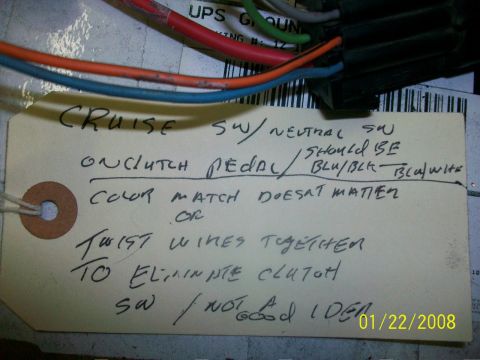 UPS GROUN
KING #: 1Z
CRUISE SW/NEUTRAL SW
ON CLUTCH PEDAL/SHOULD BE BLU/BLK — BLU/WHE
COLOR MATCH DOESNT MATTER
OR
TWIST WIRES TOGETHER
TO ELIMINATE CLUTCH
SW / NOT A GOOD IDEA
01/22/2008